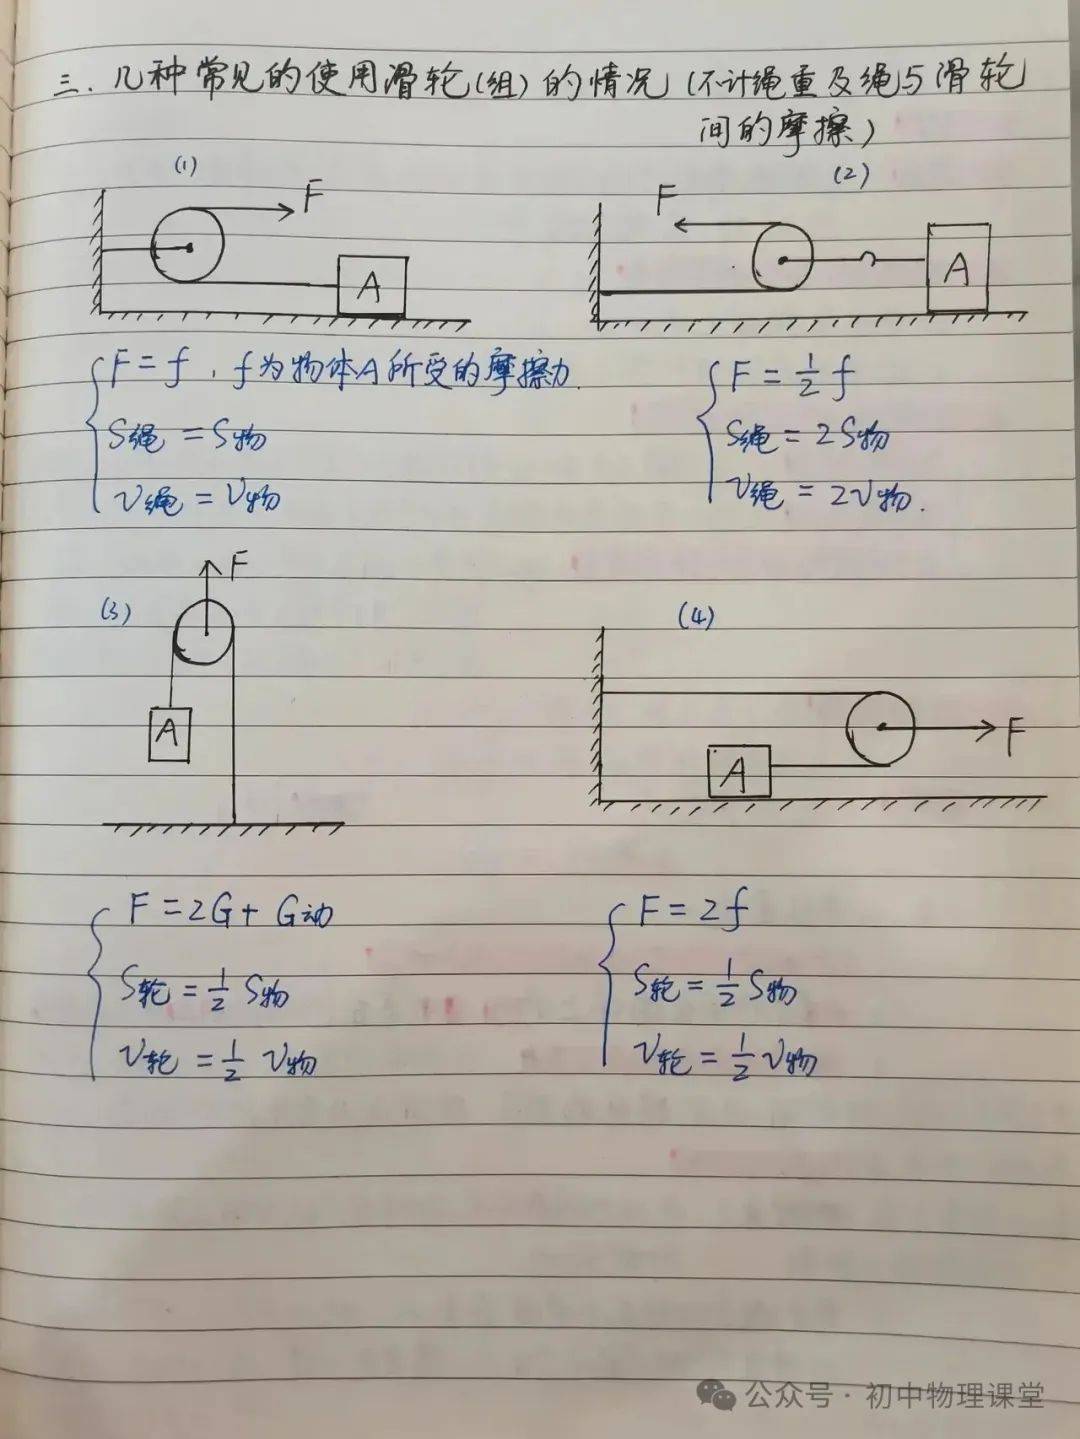 三.几种常见的使用滑轮(组)的情况(不计绳重及绳与滑轮
间的摩擦)
(1)
F
A
(2)
F
A
F=f,f为物体A所受的摩擦力.
S绳=S物
v绳=v物
F=1/2 f
S绳=2S物
v绳=2v物.
(3)
F
A
(4)
A
F
F=2G+G动
S轮=1/2 S物
v轮=1/2 v物
F=2f
S轮=1/2 S物
v轮=1/2 v物
公众号·初中物理课堂